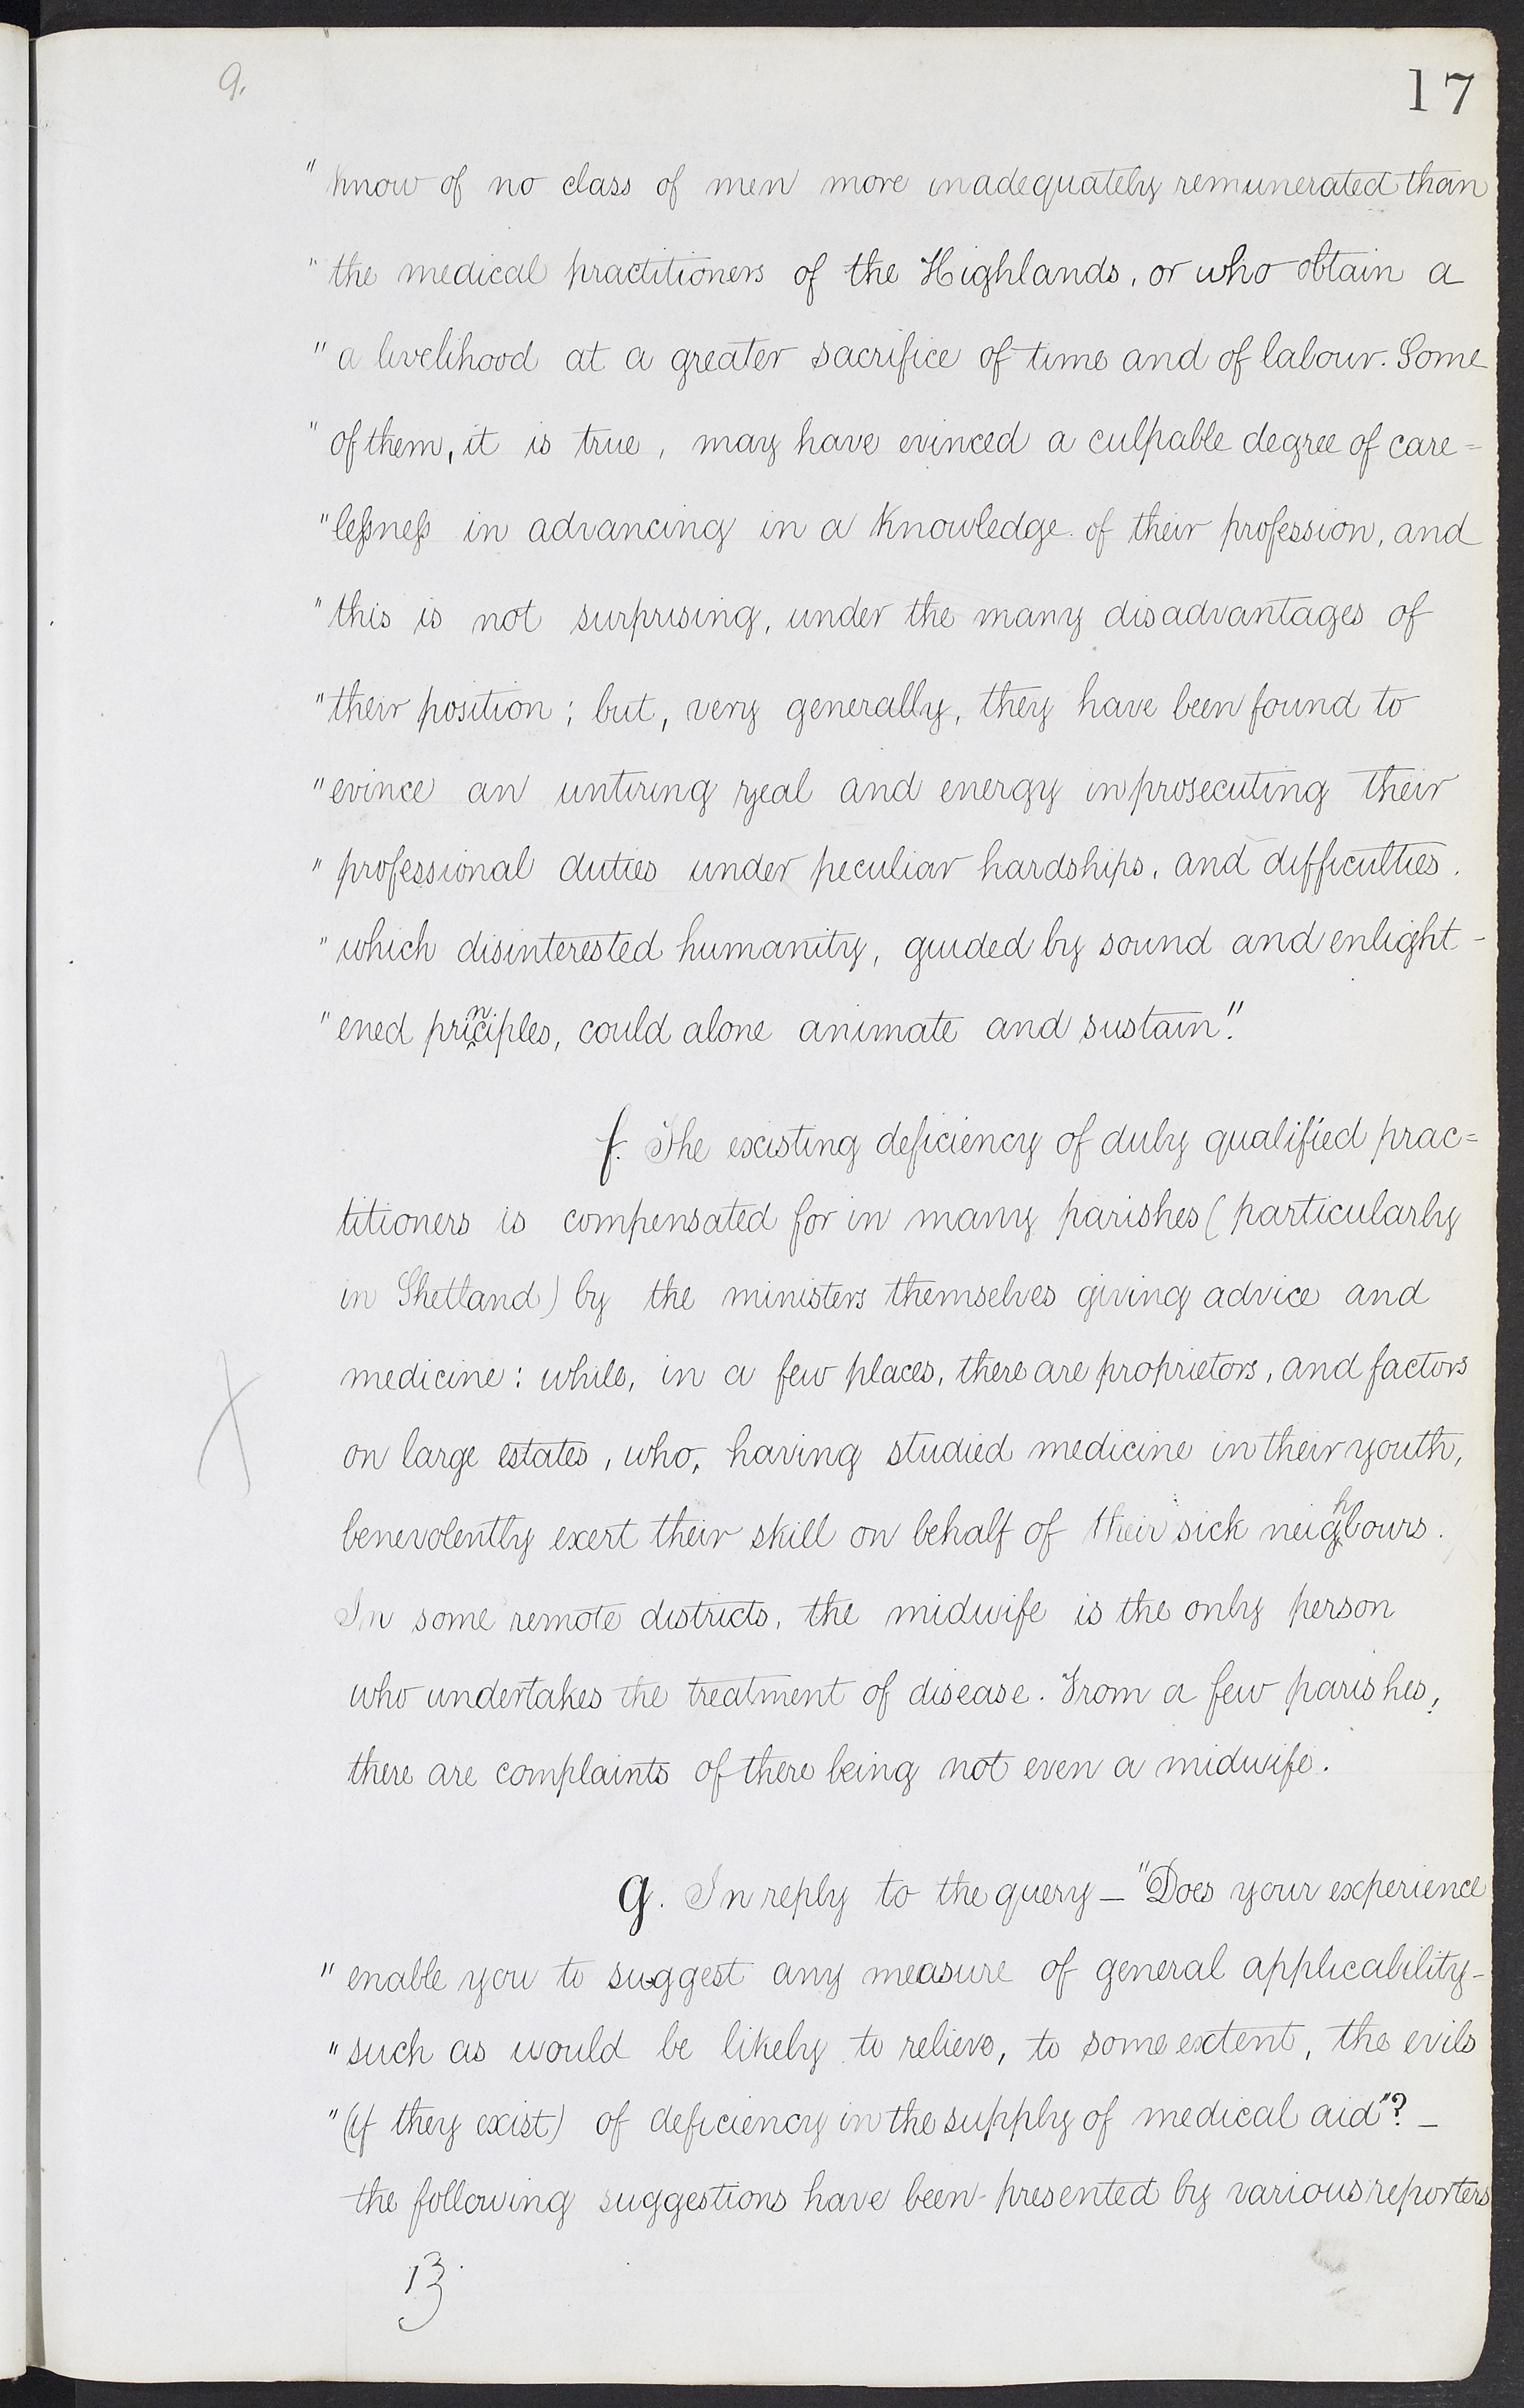 9.
17
" know of no class of men more inadequately remunerated than
" the medical practitioners of the Highlands, or who obtain a
" a livelihood at a greater sacrifice of time and of labour. Some
" of them, it is true, may have evinced a culpable degree of care=
" lessness in advancing in a knowledge of their profession, and
" this is not surprising, under the many disadvantages of
" their position; but, very generally, they have been found to
" evince an untiring zeal and energy in prosecuting their
" professional duties under peculiar hardships, and difficulties.
" which disinterested humanity, guided by sound and enlight-
" ened principles, could alone animate and sustain."
f. The existing deficiency of duly qualified prac=
titioners is compensated for in many parishes (particularly
in Shetland) by the ministers themselves giving advice and
medicine: while, in a few places, there are proprietors, and factors
on large estates, who, having studied medicine in their youth,
benevolently exert their skill on behalf of their sick neighbours.
In some remote districts, the midwife is the only person
who undertakes the treatment of disease. From a few parishes,
there are complaints of there being not even a midwife.
g. In reply to the query — "Does your experience
" enable you to suggest any measure of general applicability-
" such as would be likely to relieve, to some extent, the evils
" (if they exist) of deficiency in the supply of medical aid"? —
the following suggestions have been presented by various reporters
13.